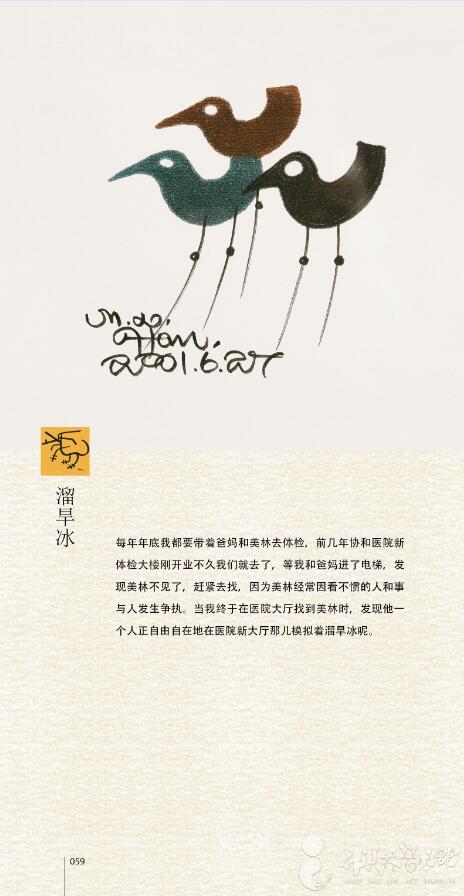 2001.6.27
溜旱冰
每年年底我都要带着爸妈和美林去体检，前几年协和医院新
体检大楼刚开业不久我们就去了，等我和爸妈进了电梯，发
现美林不见了，赶紧去找，因为美林经常因看不惯的人和事
与人发生争执。当我终于在医院大厅找到美林时，发现他一
个人正自由自在地在医院新大厅那儿模拟着溜旱冰呢。
059